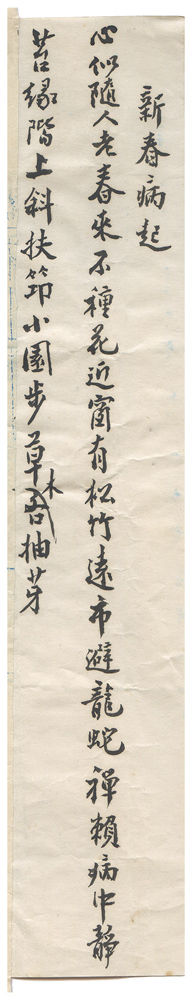 新春病起
心似隨人老春來不種花近窗有松竹遠市避龍蛇禪賴病中靜
苔緣階上斜扶筇小園步草木抽芽